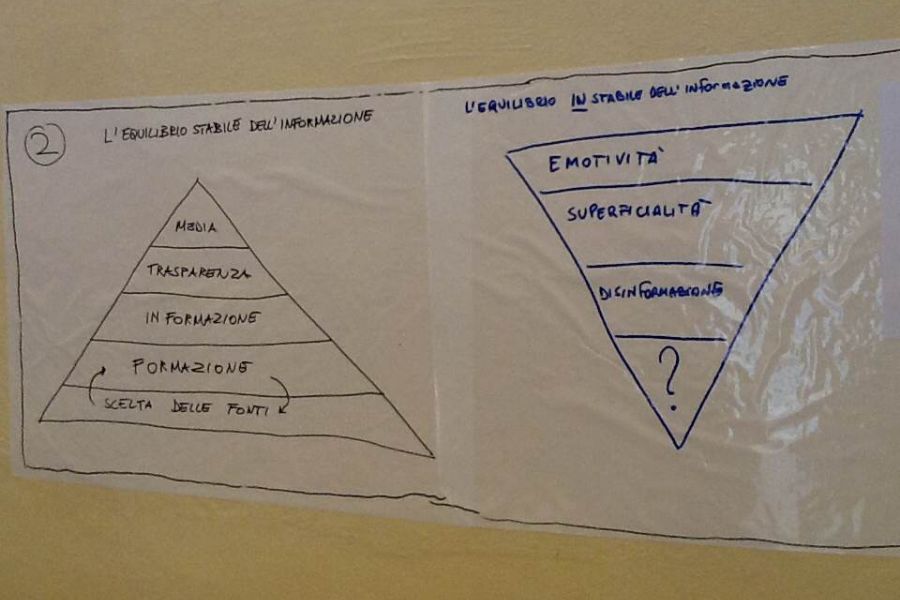 2
L'EQUILIBRIO STABILE DELL'INFORMAZIONE
MEDIA
TRASPARENZA
INFORMAZIONE
FORMAZIONE
SCELTA DELLE FONTI
L'EQUILIBRIO IN STABILE DELL'INFORMAZIONE
EMOTIVITÀ
SUPERFICIALITÀ
DISINFORMAZIONE
?